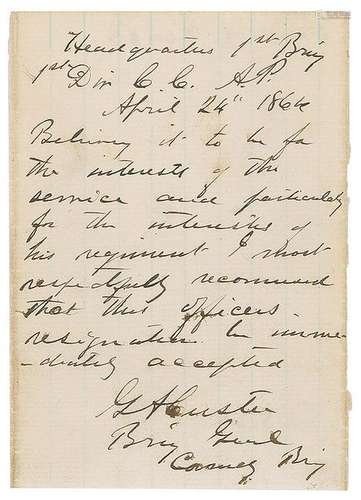 Headquarters 1st Brig
1st Div C. C. A.P.
April 24" 1864
Believing it to be for
the interests of the
service and particularly
for the interests of
his regiment I most
respectfully recommend
that this officers
resignation be imme-
-diately accepted
GACuster
Brig Genl
Comdg Brig